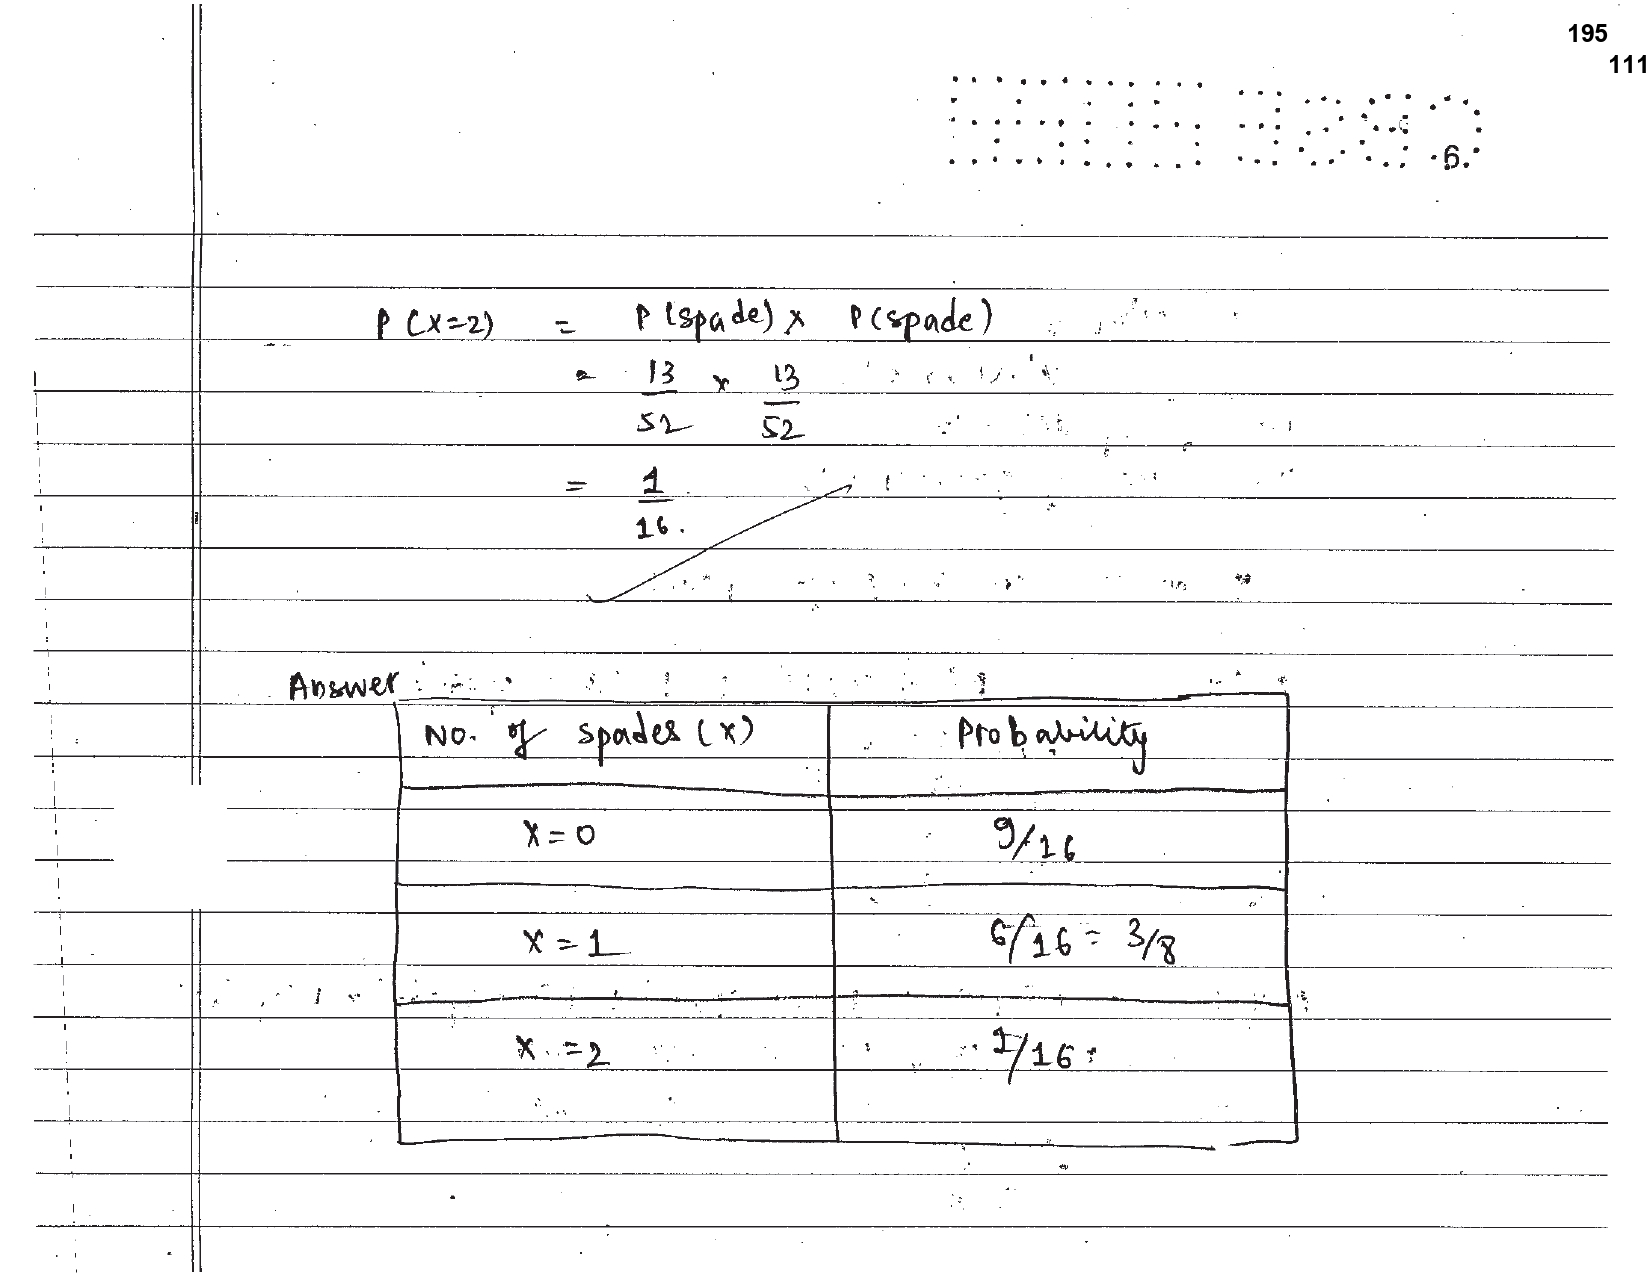 195
111
CBSE
6.
P(X=2) = P(spade) x P(spade)
= 13/52 x 13/52
= 1/16.
Answer
No. of spades (X) Probability
X=0 9/16
X=1 6/16 = 3/8
X=2 1/16